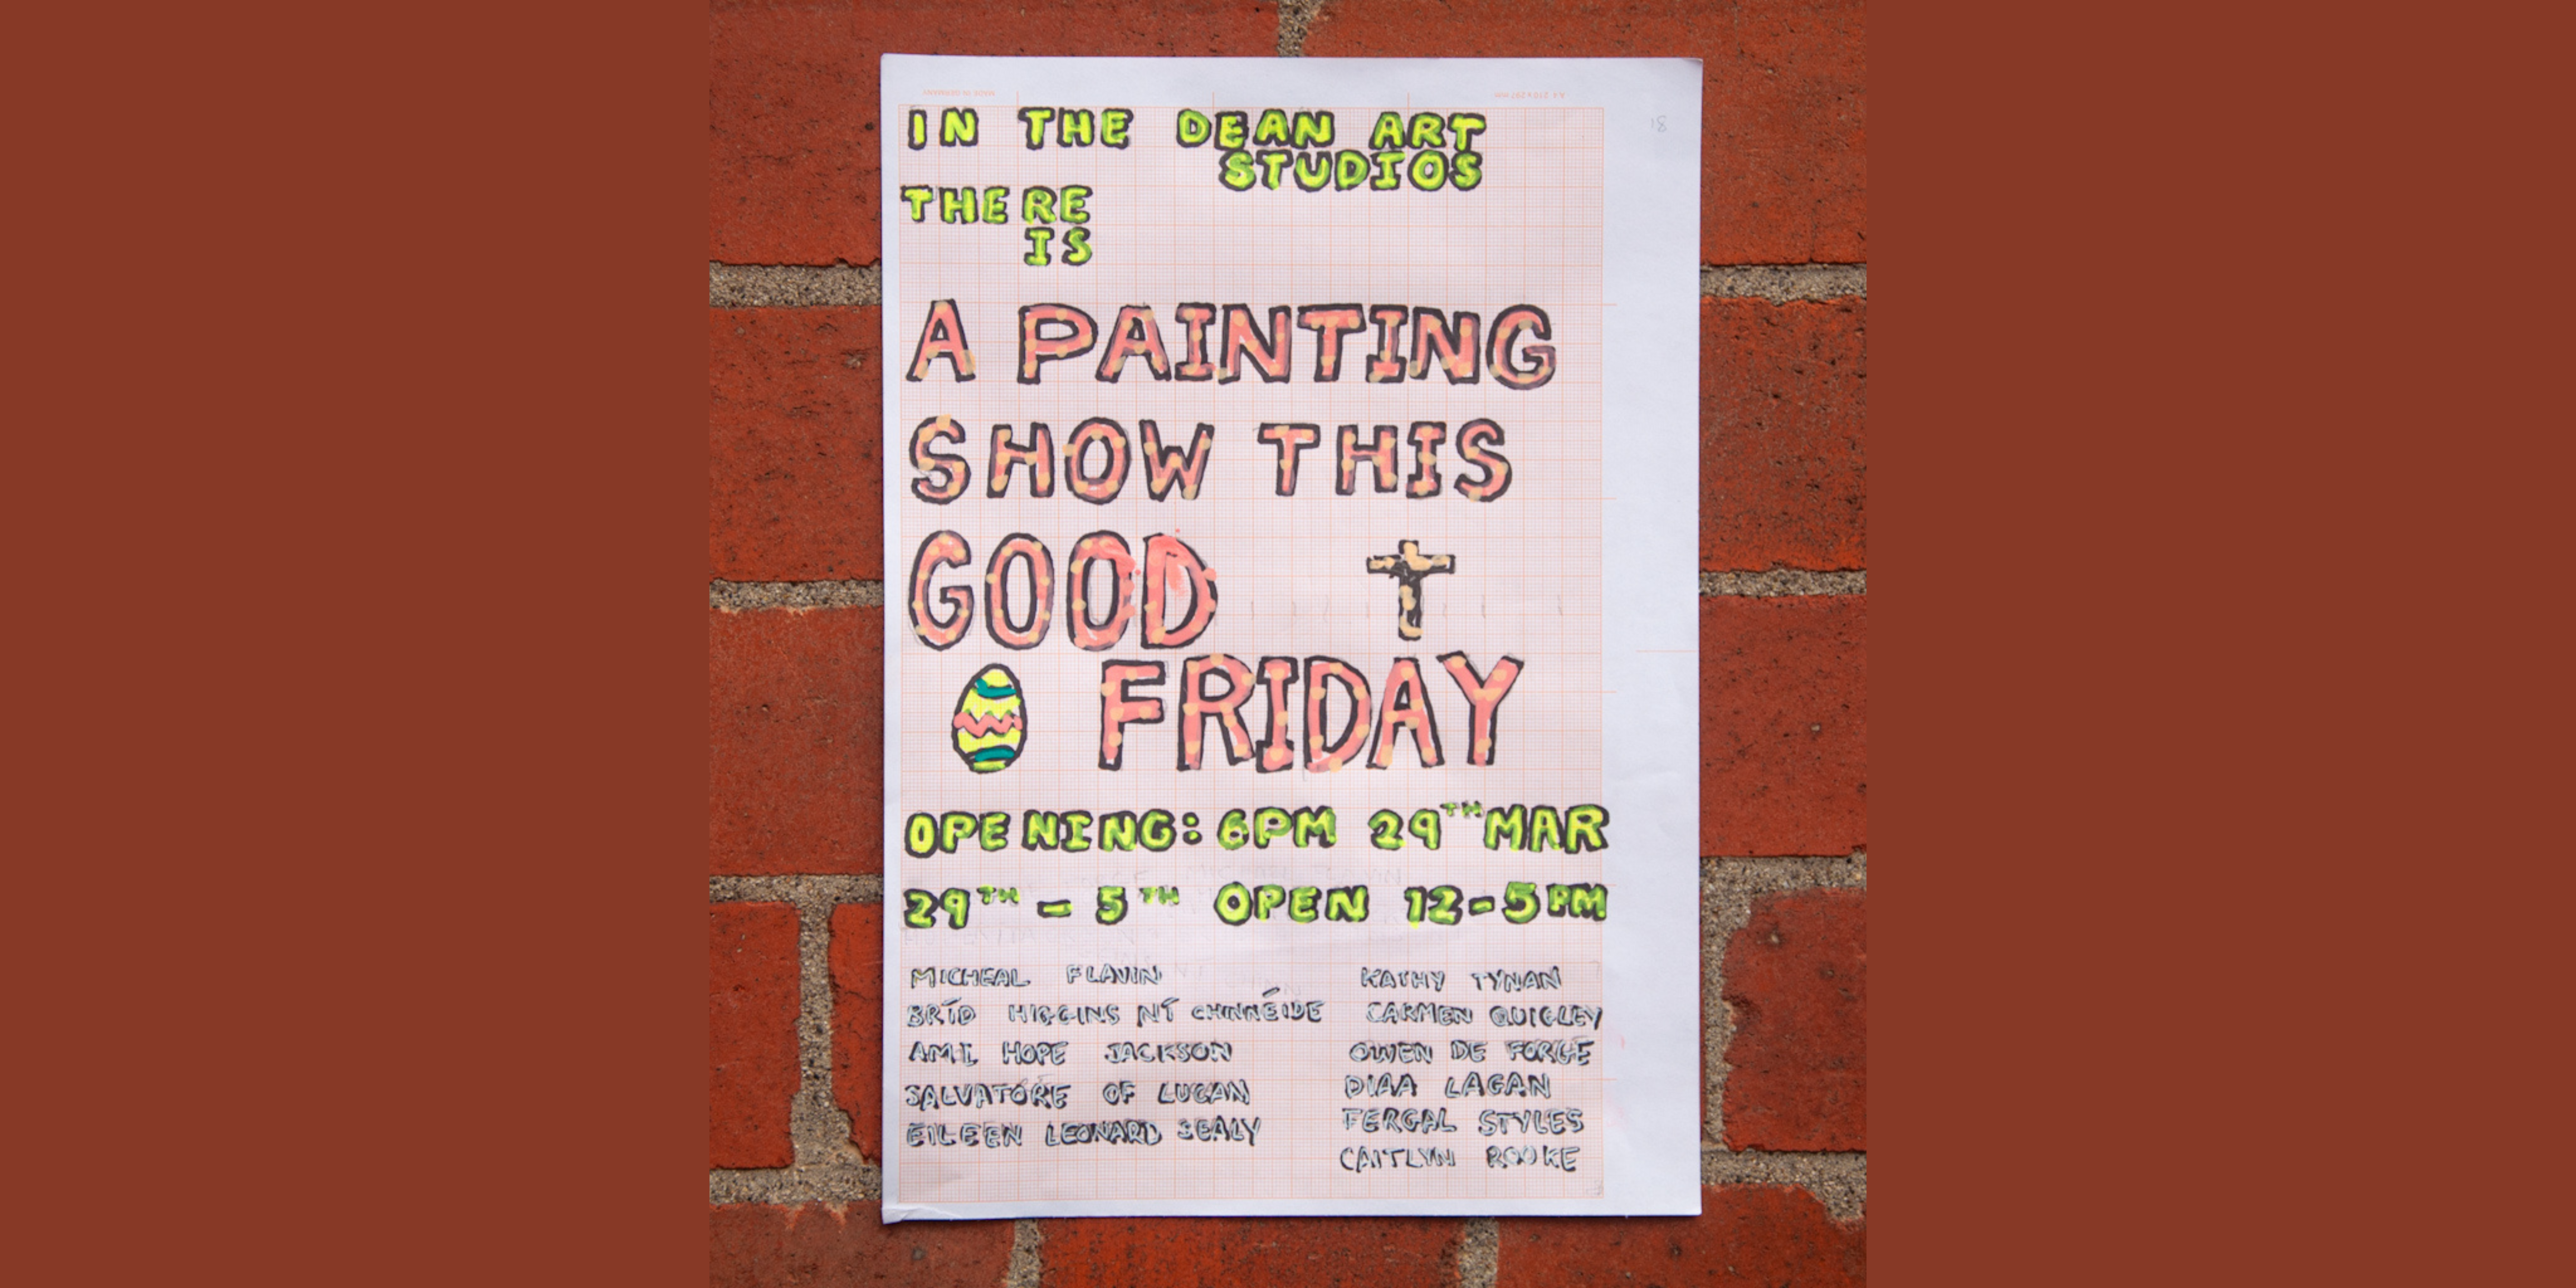 IN THE DEAN ART
STUDIOS
THERE
IS
A PAINTING
SHOW THIS
GOOD
FRIDAY
OPENING: 6PM 29TH MAR
29TH - 5TH OPEN 12-5PM
MICHEAL FLAVIN
BRÍD HIGGINS NÍ CHINNÉIDE
AMI HOPE JACKSON
SALVATORE OF LUCAN
EILEEN LEONARD SEALY
KATHY TYNAN
CARMEN QUIGLEY
OWEN DE FORGE
DIAA LAGAN
FERGAL STYLES
CAITLYN ROOKE
MADE IN GERMANY
18